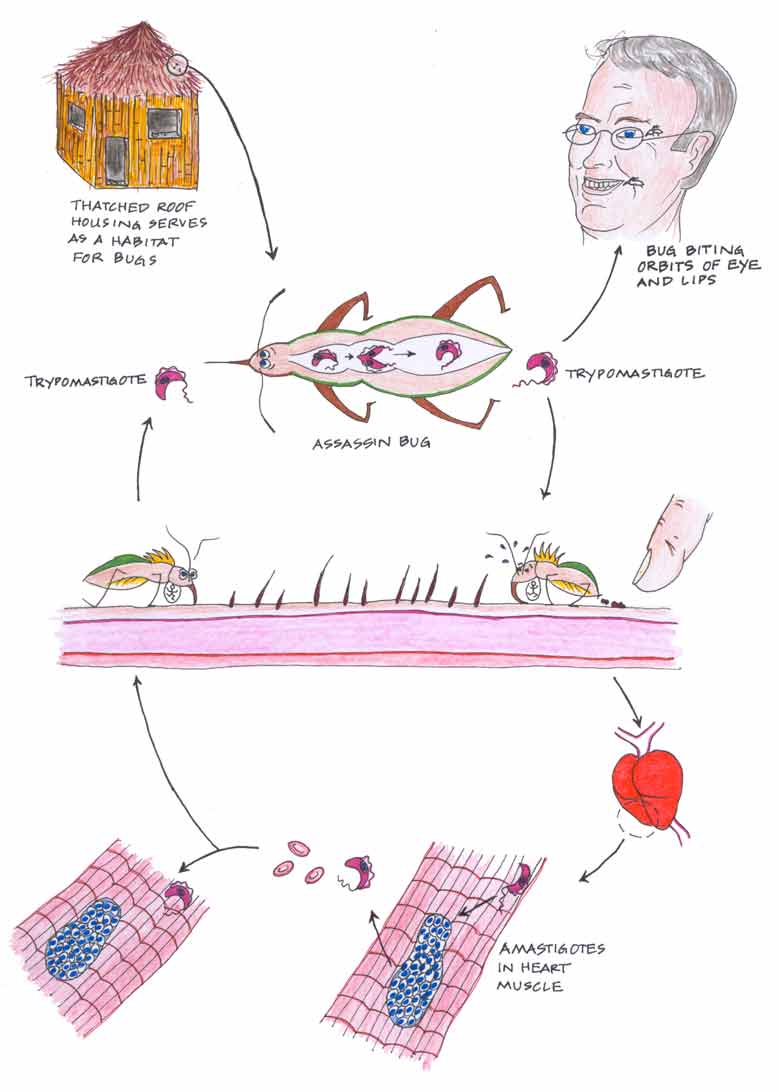 THATCHED ROOF
HOUSING SERVES
AS A HABITAT
FOR BUGS
BUG BITING
ORBITS OF EYE
AND LIPS
TRYPOMASTIGOTE
TRYPOMASTIGOTE
ASSASSIN BUG
AMASTIGOTES
IN HEART
MUSCLE